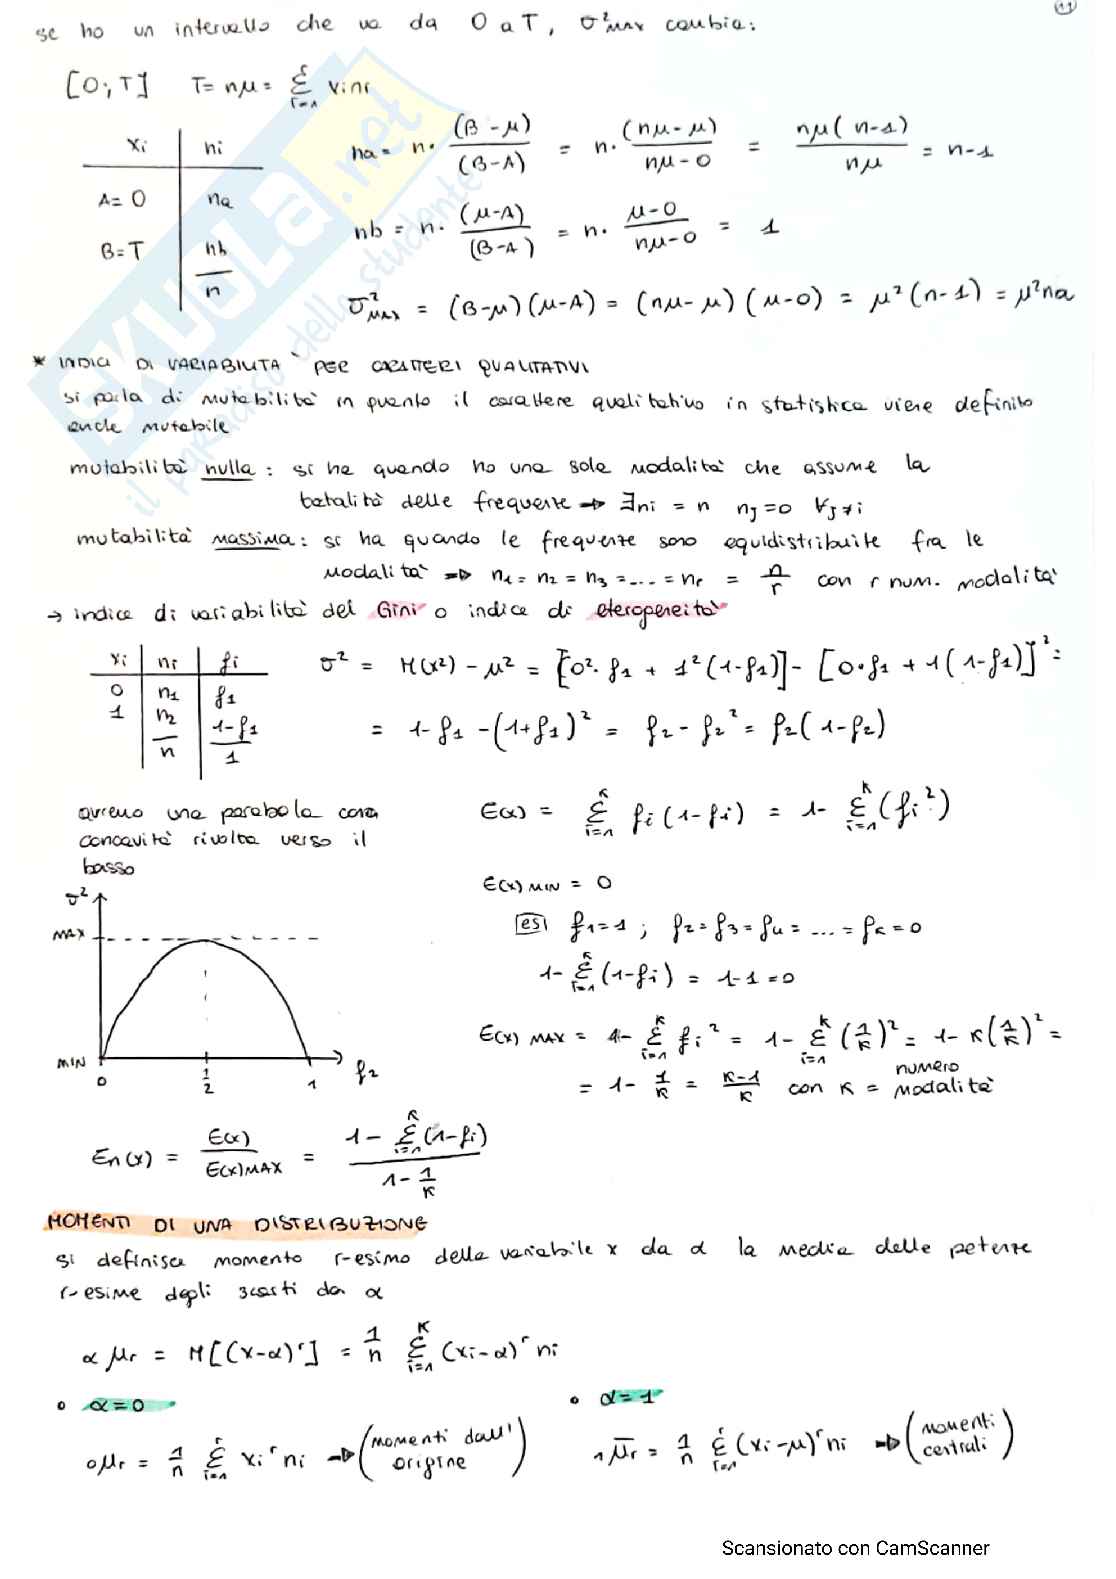 11
se ho un intervallo che va da 0 a T, σ²MAX cambia:
[0; T] T= nμ = Σ i=1 r xini
xi | ni
A= 0 | na
B=T | nb
n
na = n· (B-μ)/(B-A) = n· (nμ-μ)/(nμ-0) = nμ(n-1)/nμ = n-1
nb = n· (μ-A)/(B-A) = n· μ-0/nμ-0 = 1
σ²MAX = (B-μ)(μ-A) = (nμ-μ)(μ-0) = μ²(n-1) = μ²na
* INDICI DI VARIABILITA' PER CARATTERI QUALITATIVI
si parla di mutabilità in quanto il carattere qualitativo in statistica viene definito
anche mutabile
mutabilità nulla: si ha quando ho una sola modalità che assume la
totalità delle frequenze → ∃ni = n nj=0 ∀j≠i
mutabilità massima: si ha quando le frequenze sono equidistribuite fra le
modalità → n1 = n2 = n3 = ... = nr = n/r con r num. modalità
→ indice di variabilità del Gini o indice di eterogeneità
xi | ni | fi
0 | n1 | f1
1 | n2 | 1-f1
n | 1
σ² = M(x²) - μ² = [0²· f1 + 1²(1-f1)] - [0·f1 + 1(1-f1)]² =
= 1-f1 -(1+f1)² = f2 - f2² = f2(1-f2)
avremo una parabola con
concavità rivolta verso il
basso
σ²
MAX
MIN
0 1/2 1 f2
E(x) = Σ i=1 k fi(1-fi) = 1- Σ i=1 k (fi²)
E(x) MIN = 0
es f1=1 ; f2=f3=f4=...=fk=0
1- Σ i=1 k (1-fi) = 1-1=0
E(x) MAX = 1- Σ i=1 k fi² = 1- Σ i=1 k (1/k)² = 1- k(1/k)² =
= 1- 1/k = k-1/k con k = numero modalità
En(x) = E(x)/E(x)MAX = 1- Σ i=1 k (1-fi) / 1- 1/k
MOMENTI DI UNA DISTRIBUZIONE
si definisce momento r-esimo della variabile x da α la media delle potenze
r-esime degli scarti da α
αμr = M[(x-α)^r] = 1/n Σ i=1 k (xi-α)^r ni
• α=0
0μr = 1/n Σ i=1 r xi^r ni → (momenti dall' origine)
• α=1
1μ̄r = 1/n Σ i=1 r (xi-μ)^r ni → (momenti centrali)
SKUOLA.net
il paradiso dello studente
Scansionato con CamScanner